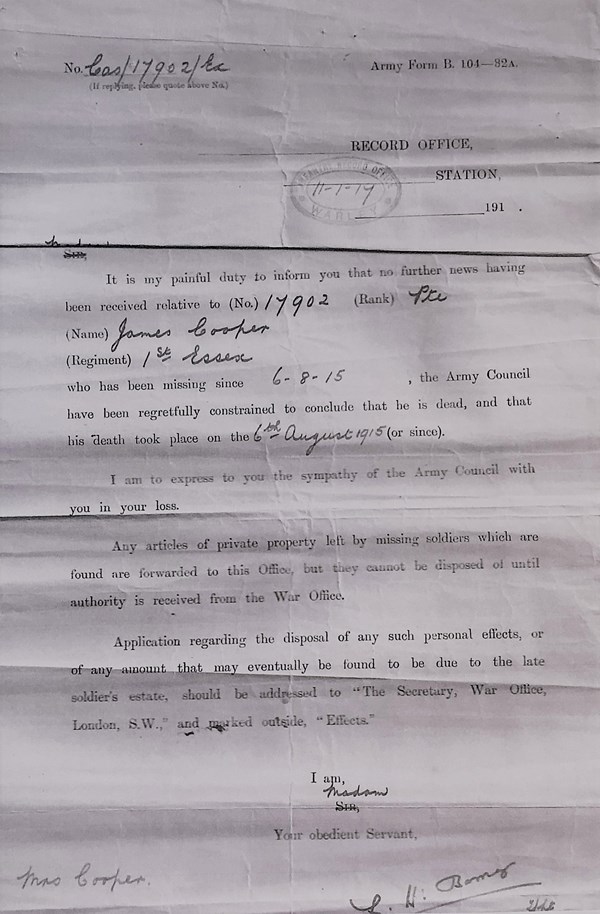 No. Cas/17902/Ex
Army Form B. 104—82A.
(If replying, please quote above No.)
RECORD OFFICE,
STATION,
11-1-17
WARLEY
191 .
SIR,
It is my painful duty to inform you that no further news having
been received relative to (No.) 17902 (Rank) Pte
(Name) James Cooper
(Regiment) 1st Essex
who has been missing since 6-8-15 , the Army Council
have been regretfully constrained to conclude that he is dead, and that
his death took place on the 6th August 1915 (or since).
I am to express to you the sympathy of the Army Council with
you in your loss.
Any articles of private property left by missing soldiers which are
found are forwarded to this Office, but they cannot be disposed of until
authority is received from the War Office.
Application regarding the disposal of any such personal effects, or
of any amount that may eventually be found to be due to the late
soldier's estate, should be addressed to "The Secretary, War Office,
London, S.W.," and marked outside, "Effects."
I am,
Madam
SIR,
Your obedient Servant,
Mrs Cooper.